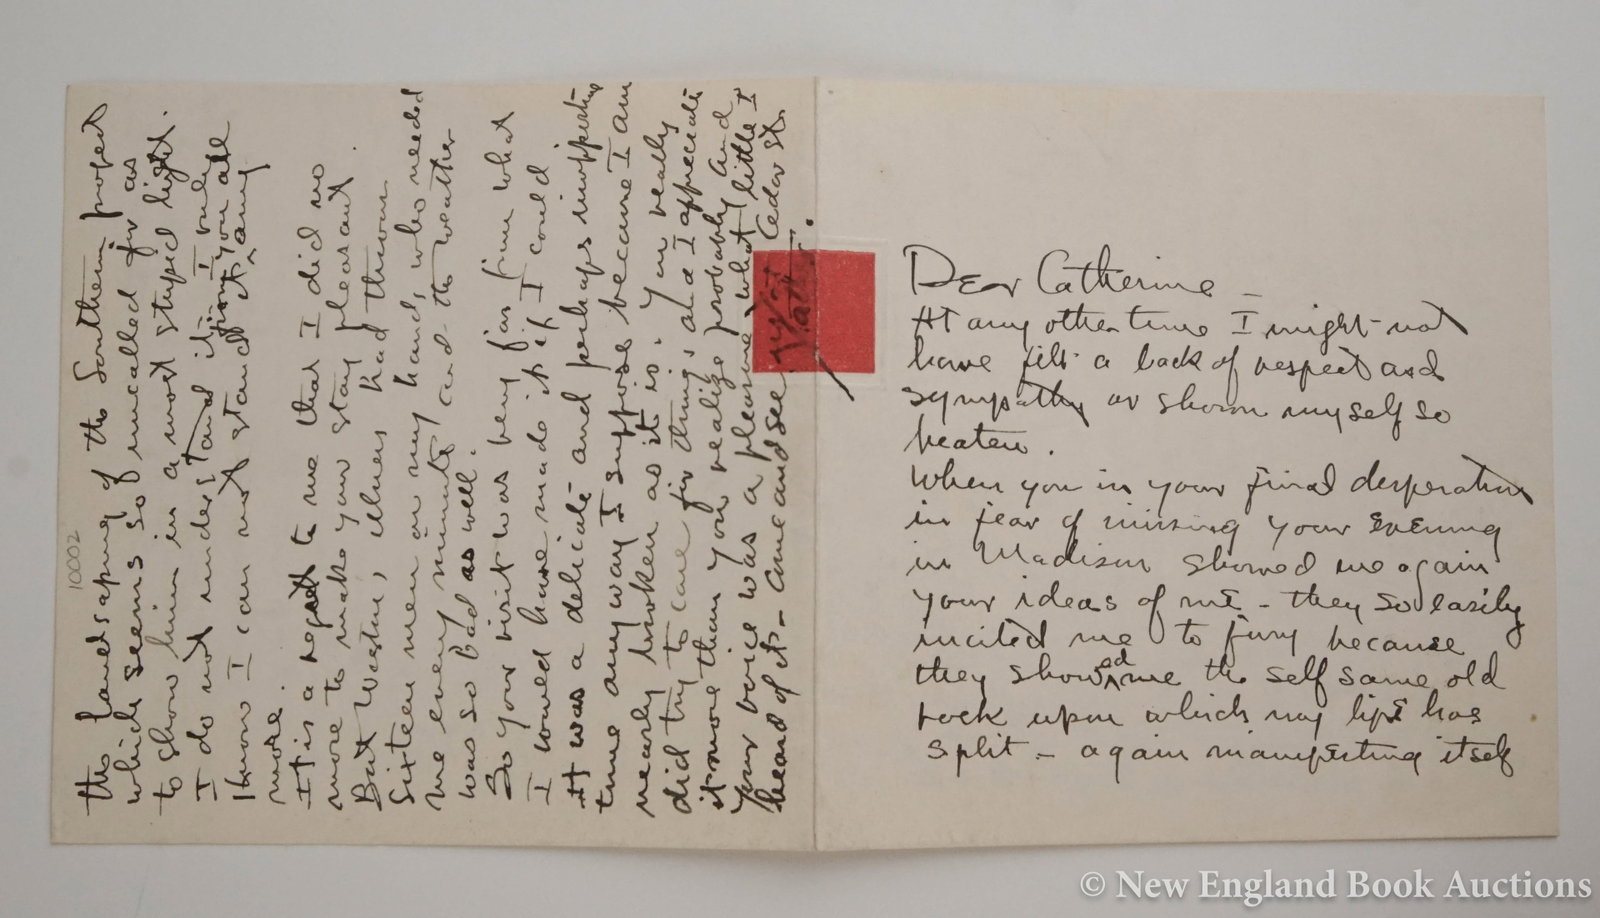 Dear Catherine –
At any other time I might not
have felt a lack of respect and
sympathy or shown myself so
beaten.
When you in your final desperation
in fear of missing your evening
in Madison showed me again
your ideas of me – they so easily
incited me to fury because
they showed me the self same old
rock upon which my life has
split – again manifesting itself
the landscaping of the Southern project
which seems so uncalled for as
to show him in a most stupid light.
I do not understand it. I only
know I can not stand it from you all any
more.
It is a regret to me that I did no
more to make your stay pleasant.
But Westcu, illness had thrown
Sixteen men on my hands, who needed
me every minute and the weather
was so Bad as well.
So your visit was very far from what
I would have made it if I could
It was a delicate and perhaps inopportune
time any way I suppose because I am
nearly broken as it is. You really
did try to care for things, and I appreciate
it more than you realize probably and
Your voice was a pleasure what little I
heard of it – Come and see Cedar St.
10002
© New England Book Auctions